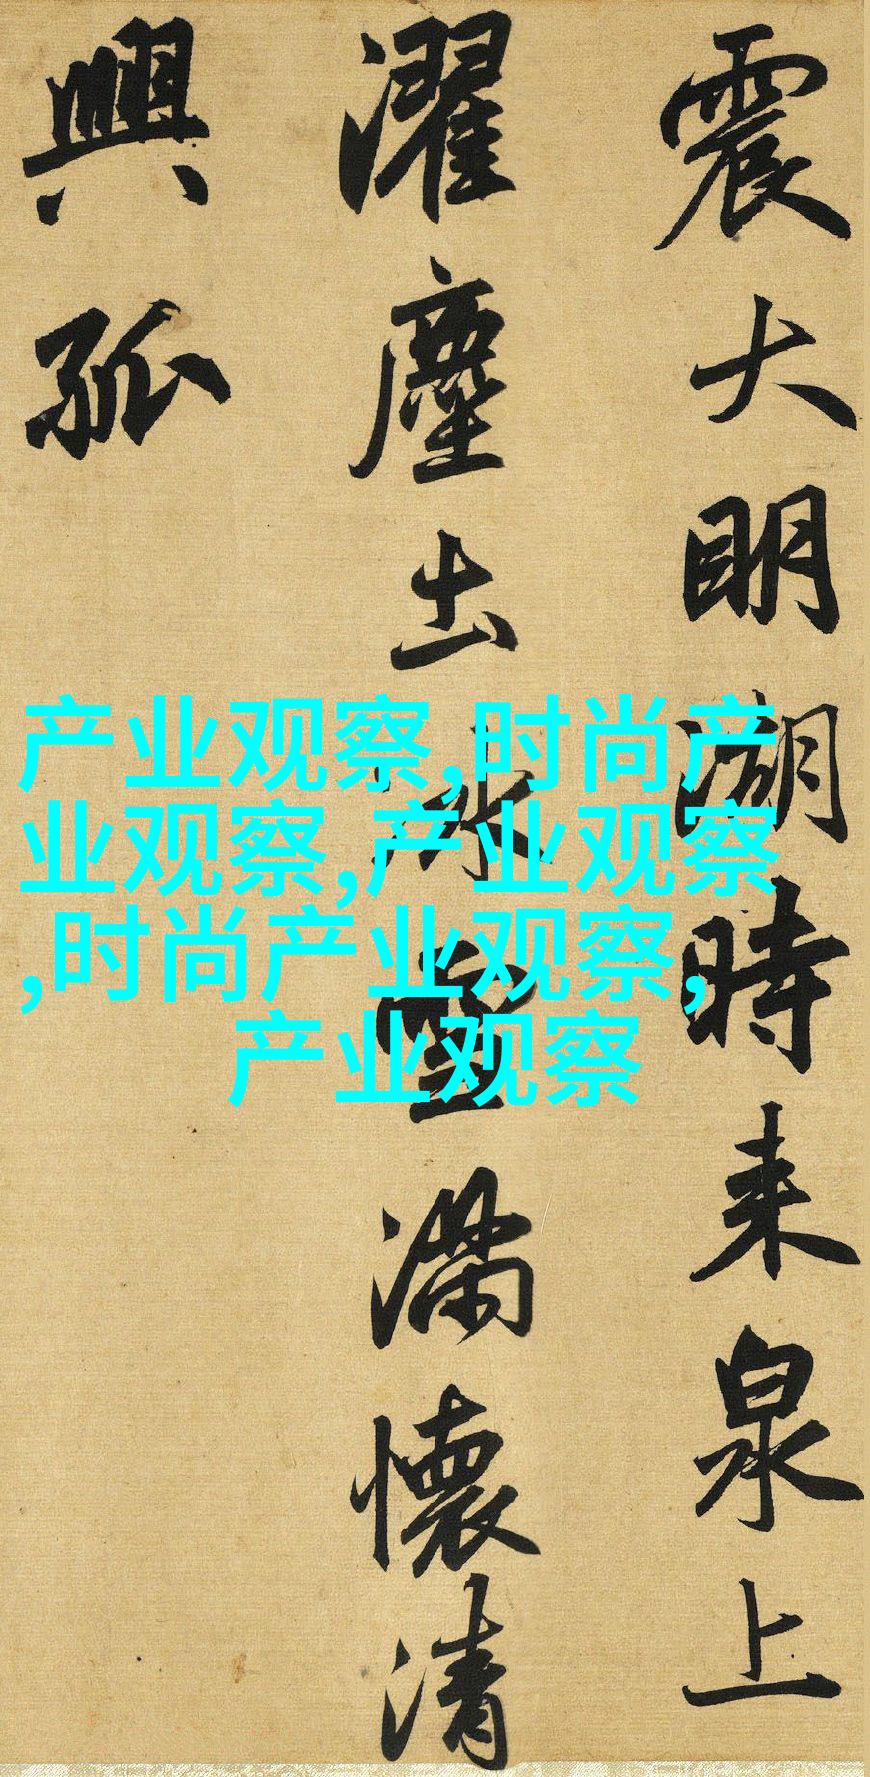 震大明湖時来泉上
濯塵土冰雪濡懷清
興孤
产业观察,时尚产
业观察,产业观察
,时尚产业观察,
产业观察